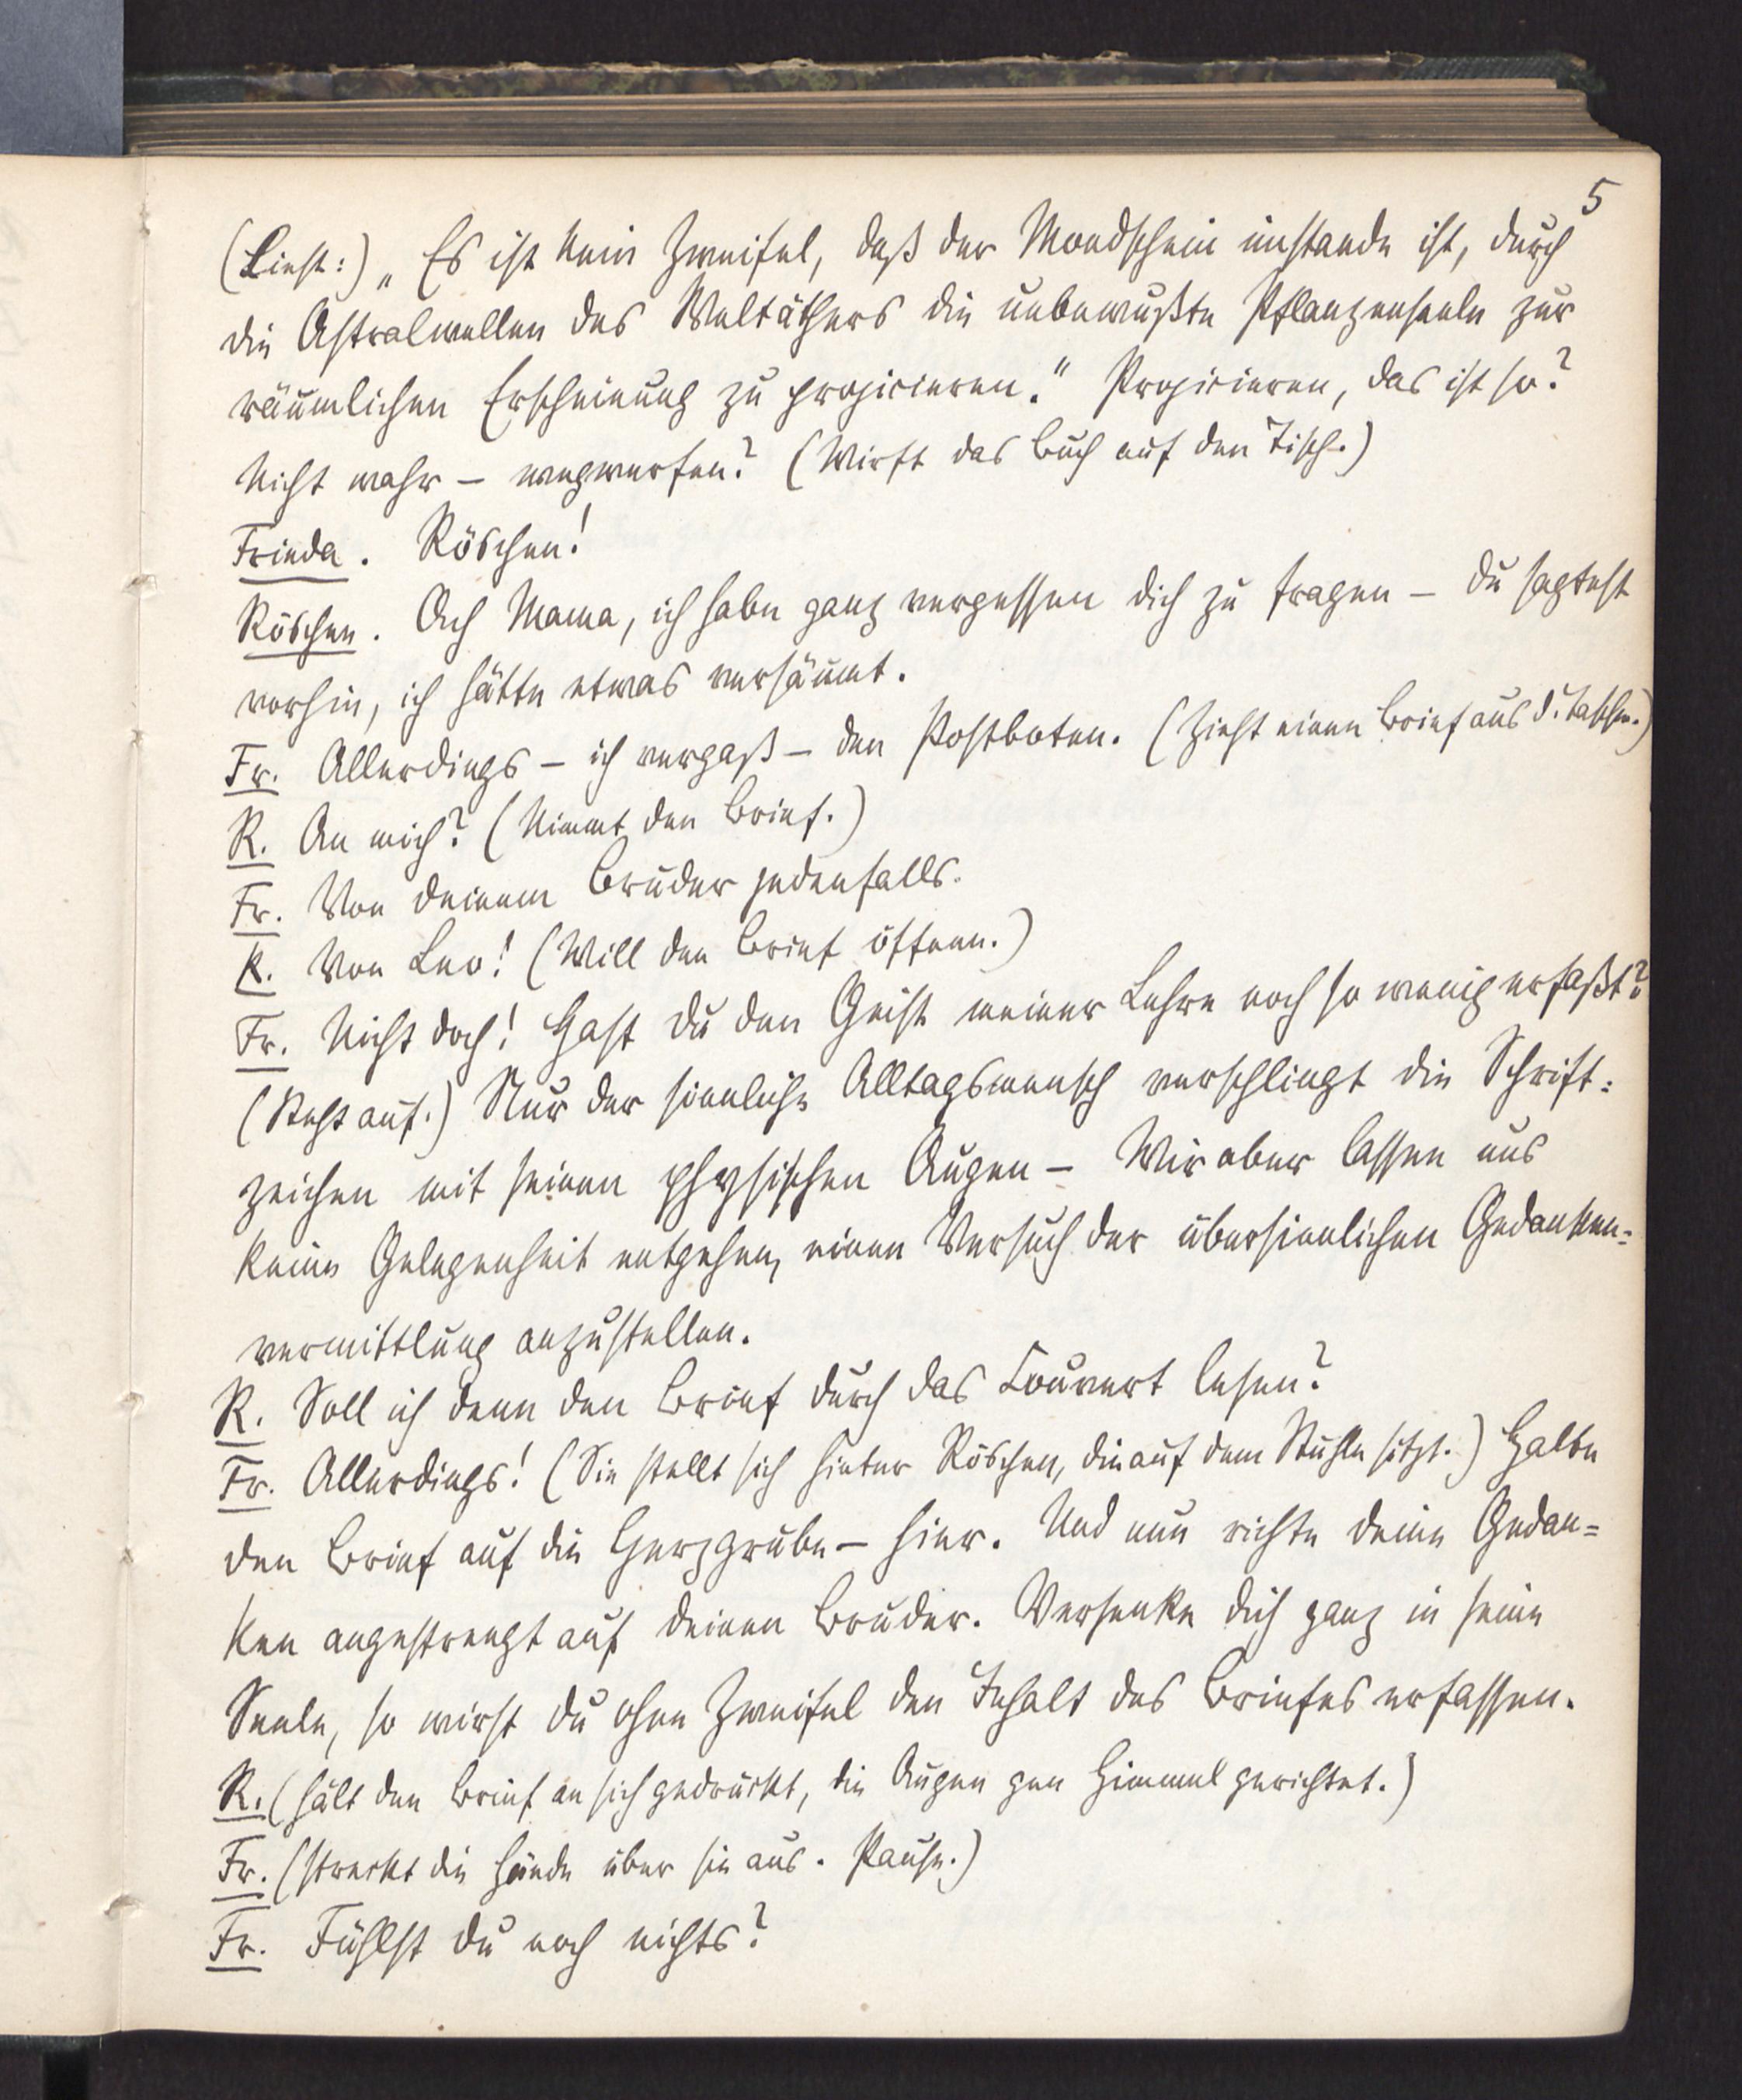 5
(Liest:) „Es ist kein Zweifel, daß der Mondschein imstande ist, durch
die Astralwellen des Weltäthers die unbewußte Pflanzenseele zur
räumlichen Erscheinung zu projicieren." Projicieren, das ist so?
Nicht wahr – wegwerfen? (Wirft das Buch auf den Tisch.)
Frieda. Röschen!
Röschen. Ach Mama, ich habe ganz vergessen dich zu fragen – du sagtest
vorhin, ich hätte etwas versäumt.
Fr. Allerdings – ich vergaß – den Postboten. (Zieht einen Brief aus d. Tasche.)
R. An mich? (Nimmt den Brief.)
Fr. Von deinem Bruder jedenfalls.
R. Von Leo! (Will den Brief öffnen.)
Fr. Nicht doch! Hast du den Geist meiner Lehre noch so wenig erfaßt?
(Steht auf.) Nur der sinnliche Alltagsmensch verschlingt die Schrift=
zeichen mit seinen physischen Augen – Wir aber lassen uns
keine Gelegenheit entgehen, einen Versuch der übersinnlichen Gedanken=
vermittlung anzustellen.
R. Soll ich denn den Brief durch das Couvert lesen?
Fr. Allerdings! (Sie stellt sich hinter Röschen, die auf dem Stuhle sitzt.) Halte
den Brief auf die Herzgrube – hier. Und nun richte deine Gedan=
ken angestrengt auf deinen Bruder. Versenke dich ganz in seine
Seele, so wirst du ohne Zweifel den Inhalt des Briefes erfassen.
R. (hält den Brief an sich gedrückt, die Augen gen Himmel gerichtet.)
Fr. (streckt die Hände über sie aus. Pause.)
Fr. Fühlst du noch nichts?